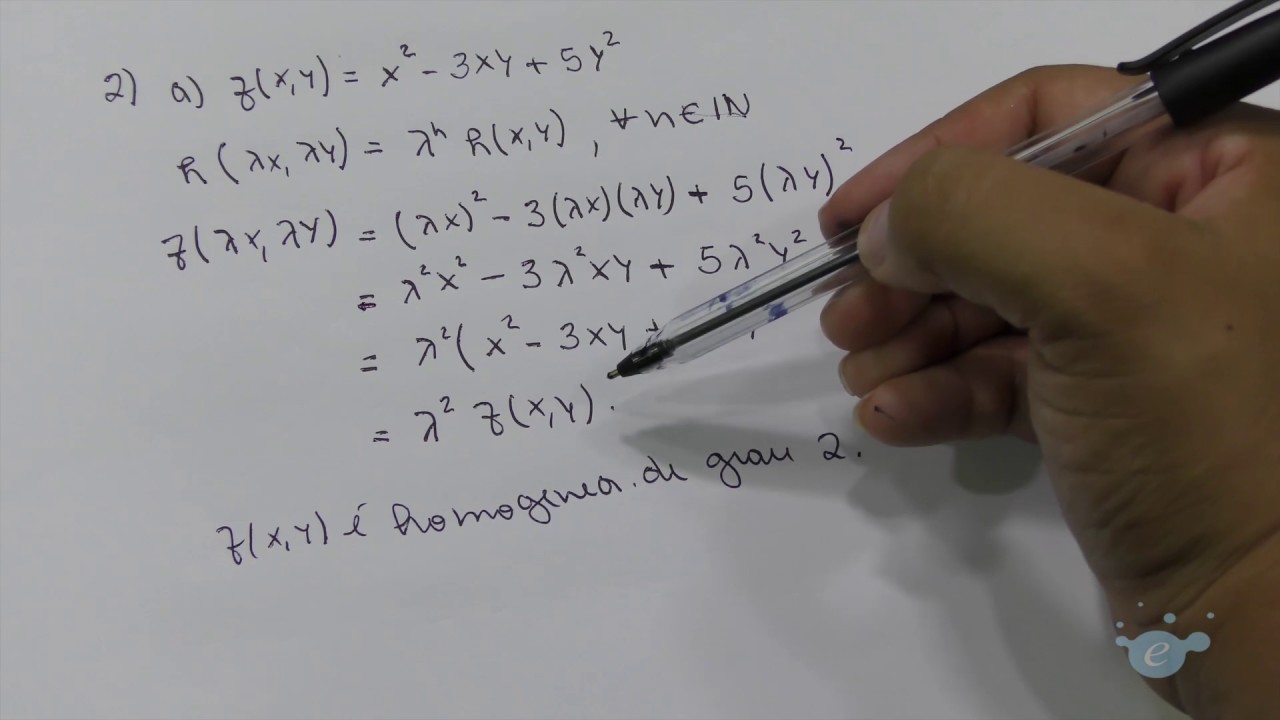 2) a) z(x,y) = x² - 3xy + 5y²
h(λx, λy) = λⁿ h(x,y), ∀ n ∈ IN
z(λx, λy) = (λx)² - 3(λx)(λy) + 5(λy)²
= λ²x² - 3λ²xy + 5λ²y²
= λ²(x² - 3xy +
= λ² z(x,y).
z(x,y) é homogenea de grau 2.
e